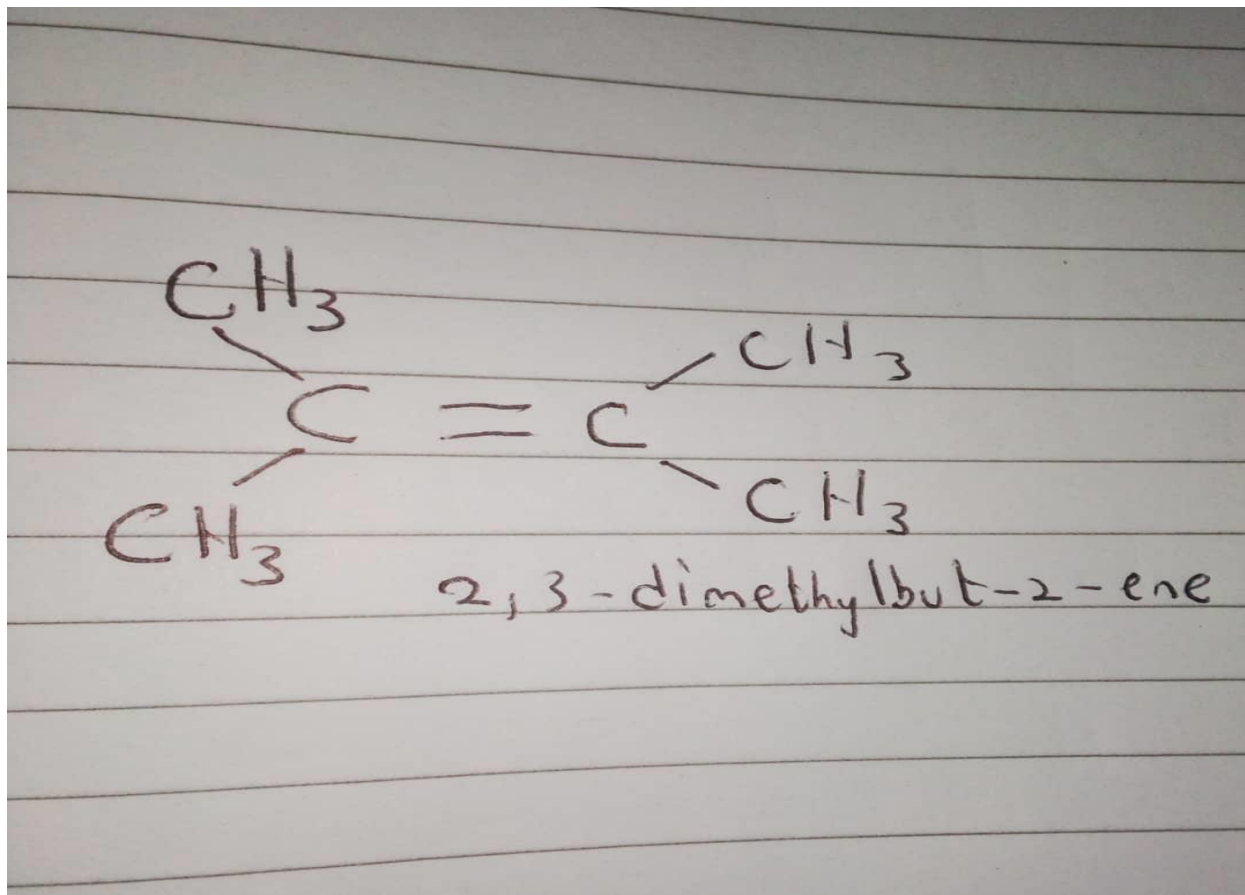 CH3 CH3
C = C
CH3 CH3
2,3-dimethylbut-2-ene